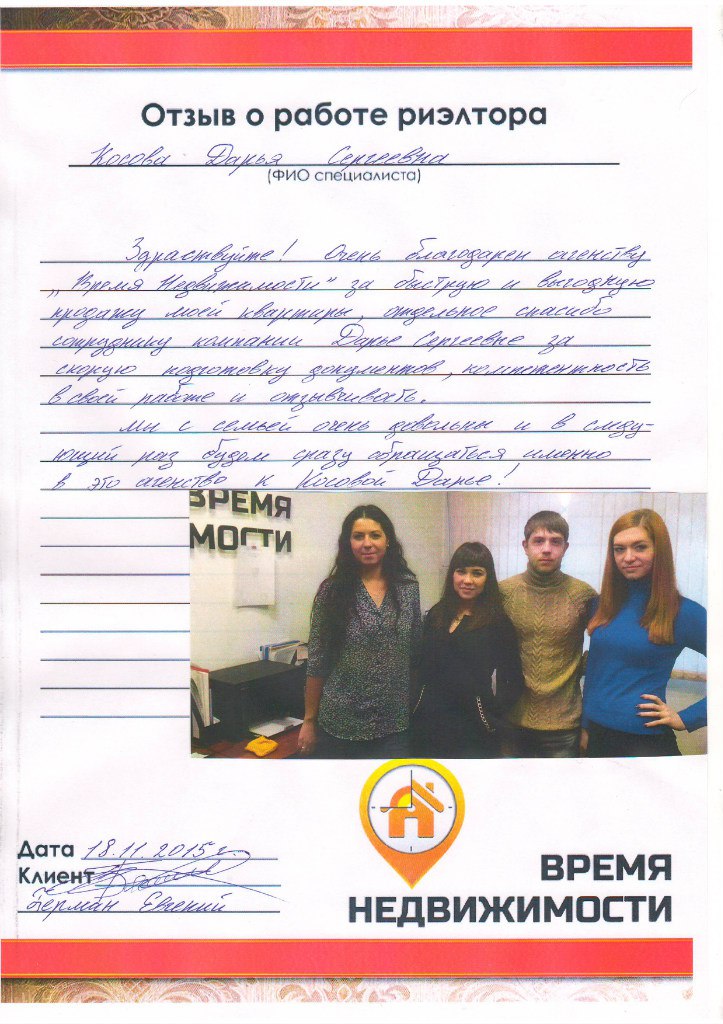 Отзыв о работе риэлтора
Косова Дарья Сергеевна
(ФИО специалиста)
Здраствуйте! Очень благодарен агенству
„Время Недвижимости" за быструю и выгодную
продажу моей квартиры, отдельное спасибо
сотруднику компании Дарье Сергеевне за
скорую подготовку документов, компетентность
в своей работе и отзывчивать.
Мы с семьей очень довольны и в следу-
ющий раз будем сразу обращаться именно
в это агенство к Косовой Дарье!
ВРЕМЯ
ИМОСТИ
Дата 18.11.2015г.
Клиент
Герман Евгений
ВРЕМЯ
НЕДВИЖИМОСТИ